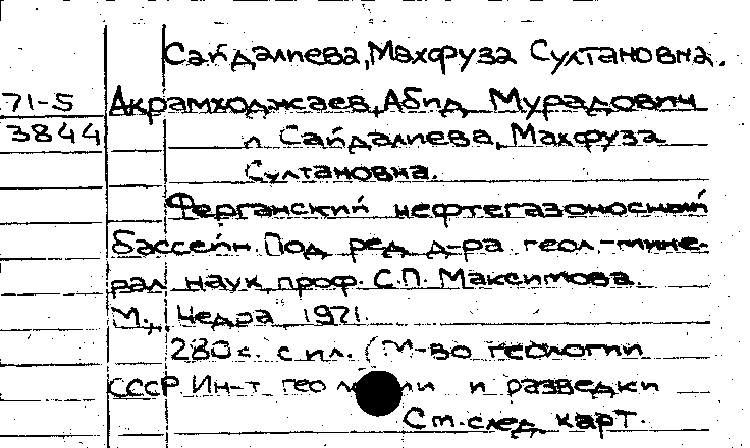 Сайдалиева, Махфуза Султановна.
71-5 Акрамходжаев, Абид Мурадович
3844 и Сайдалиева, Махфуза
Султановна.
Ферганский нефтегазоносный
бассейн. Под ред д-ра геол.-мине-
рал наук, проф. С.П. Максимова.
М., Недра, 1971.
280 с. с ил. (М-во геологии
СССР Ин-т и разведки
См. след. карт.